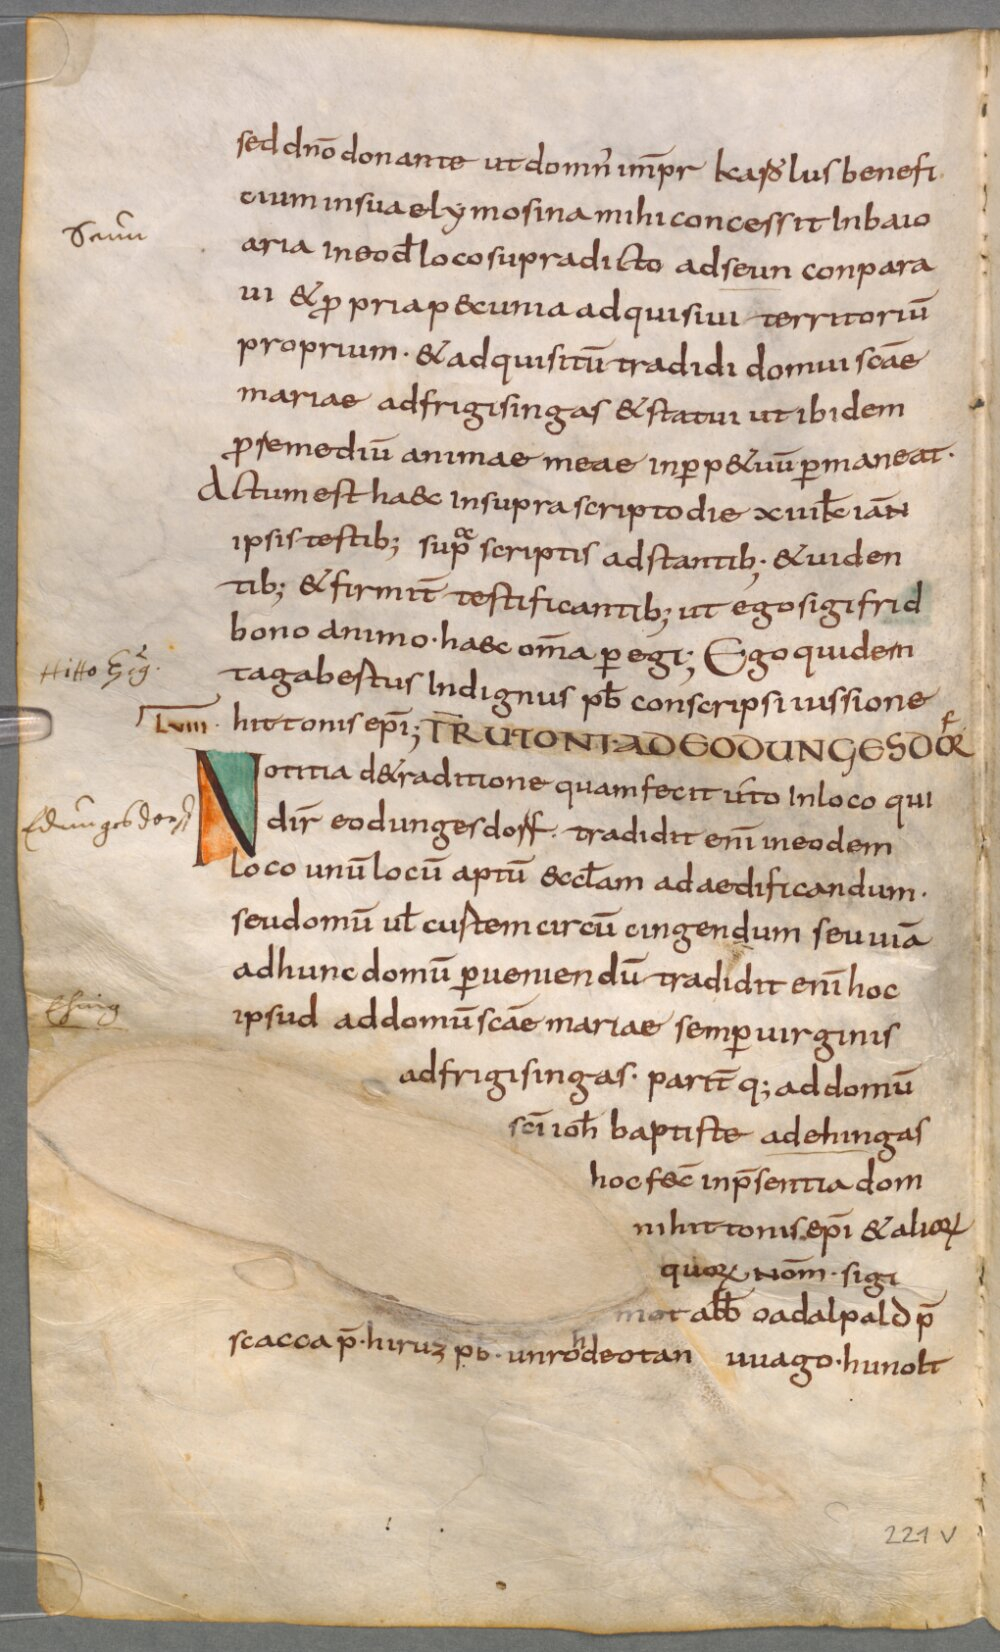 sed dnō donante ut domn̄ im̄pr karlus benefi
cium in sua elymosina mihi concessit In baio
Seun
aria in eod̄ loco supradicto ad seun conpara
ui & ꝓpria pecunia adquisiui territoriū
proprium · & adquisitū tradidi domui scāe
mariae ad frigisingas & statui ut ibidem
ꝓ remediū animae meae in ꝑp&uū ꝑmaneat ·
Actum est haec In supra scripto die xvii kl̄ iaN̄
ipsis testib; supra scriptis adstantib; · & uiden
tib; & firmit̄ testificantib; ut ego sigifrid
bono animo · haec om̄a ꝑegi; Ego quidem
Hitto
tagabertus Indignus pb̄ conscripsi iussione
LVIII · hittonis ep̄i; TRUTONI AD EODUNGESDORF
Notitia de traditione quam fecit in loco qui
Edungesdorf
dir̄ eodungesdorf · tradidit enī in eodem
loco unū locū aptū eccl̄am ad aedificandum ·
seu domū ul̄ custem circū cingendum seu uiā
ad hunc domū ꝑueniendū tradidit enī hoc
Ehing
ipsud ad domū scāe mariae semꝑ uirginis
ad frigisingas · parit̄ q; ad domū
sc̄i ioh̄ baptiste ad ehingas
hoc fec̄ in p̄sentia dom
ni hittonis ep̄i & alioꝝ
quoꝝ Nōm · sigi
mot abb̄ oadalpald p̄
scacco p̄ · hiruz pb̄ · unroh deotan uuago · hunolt
221 v